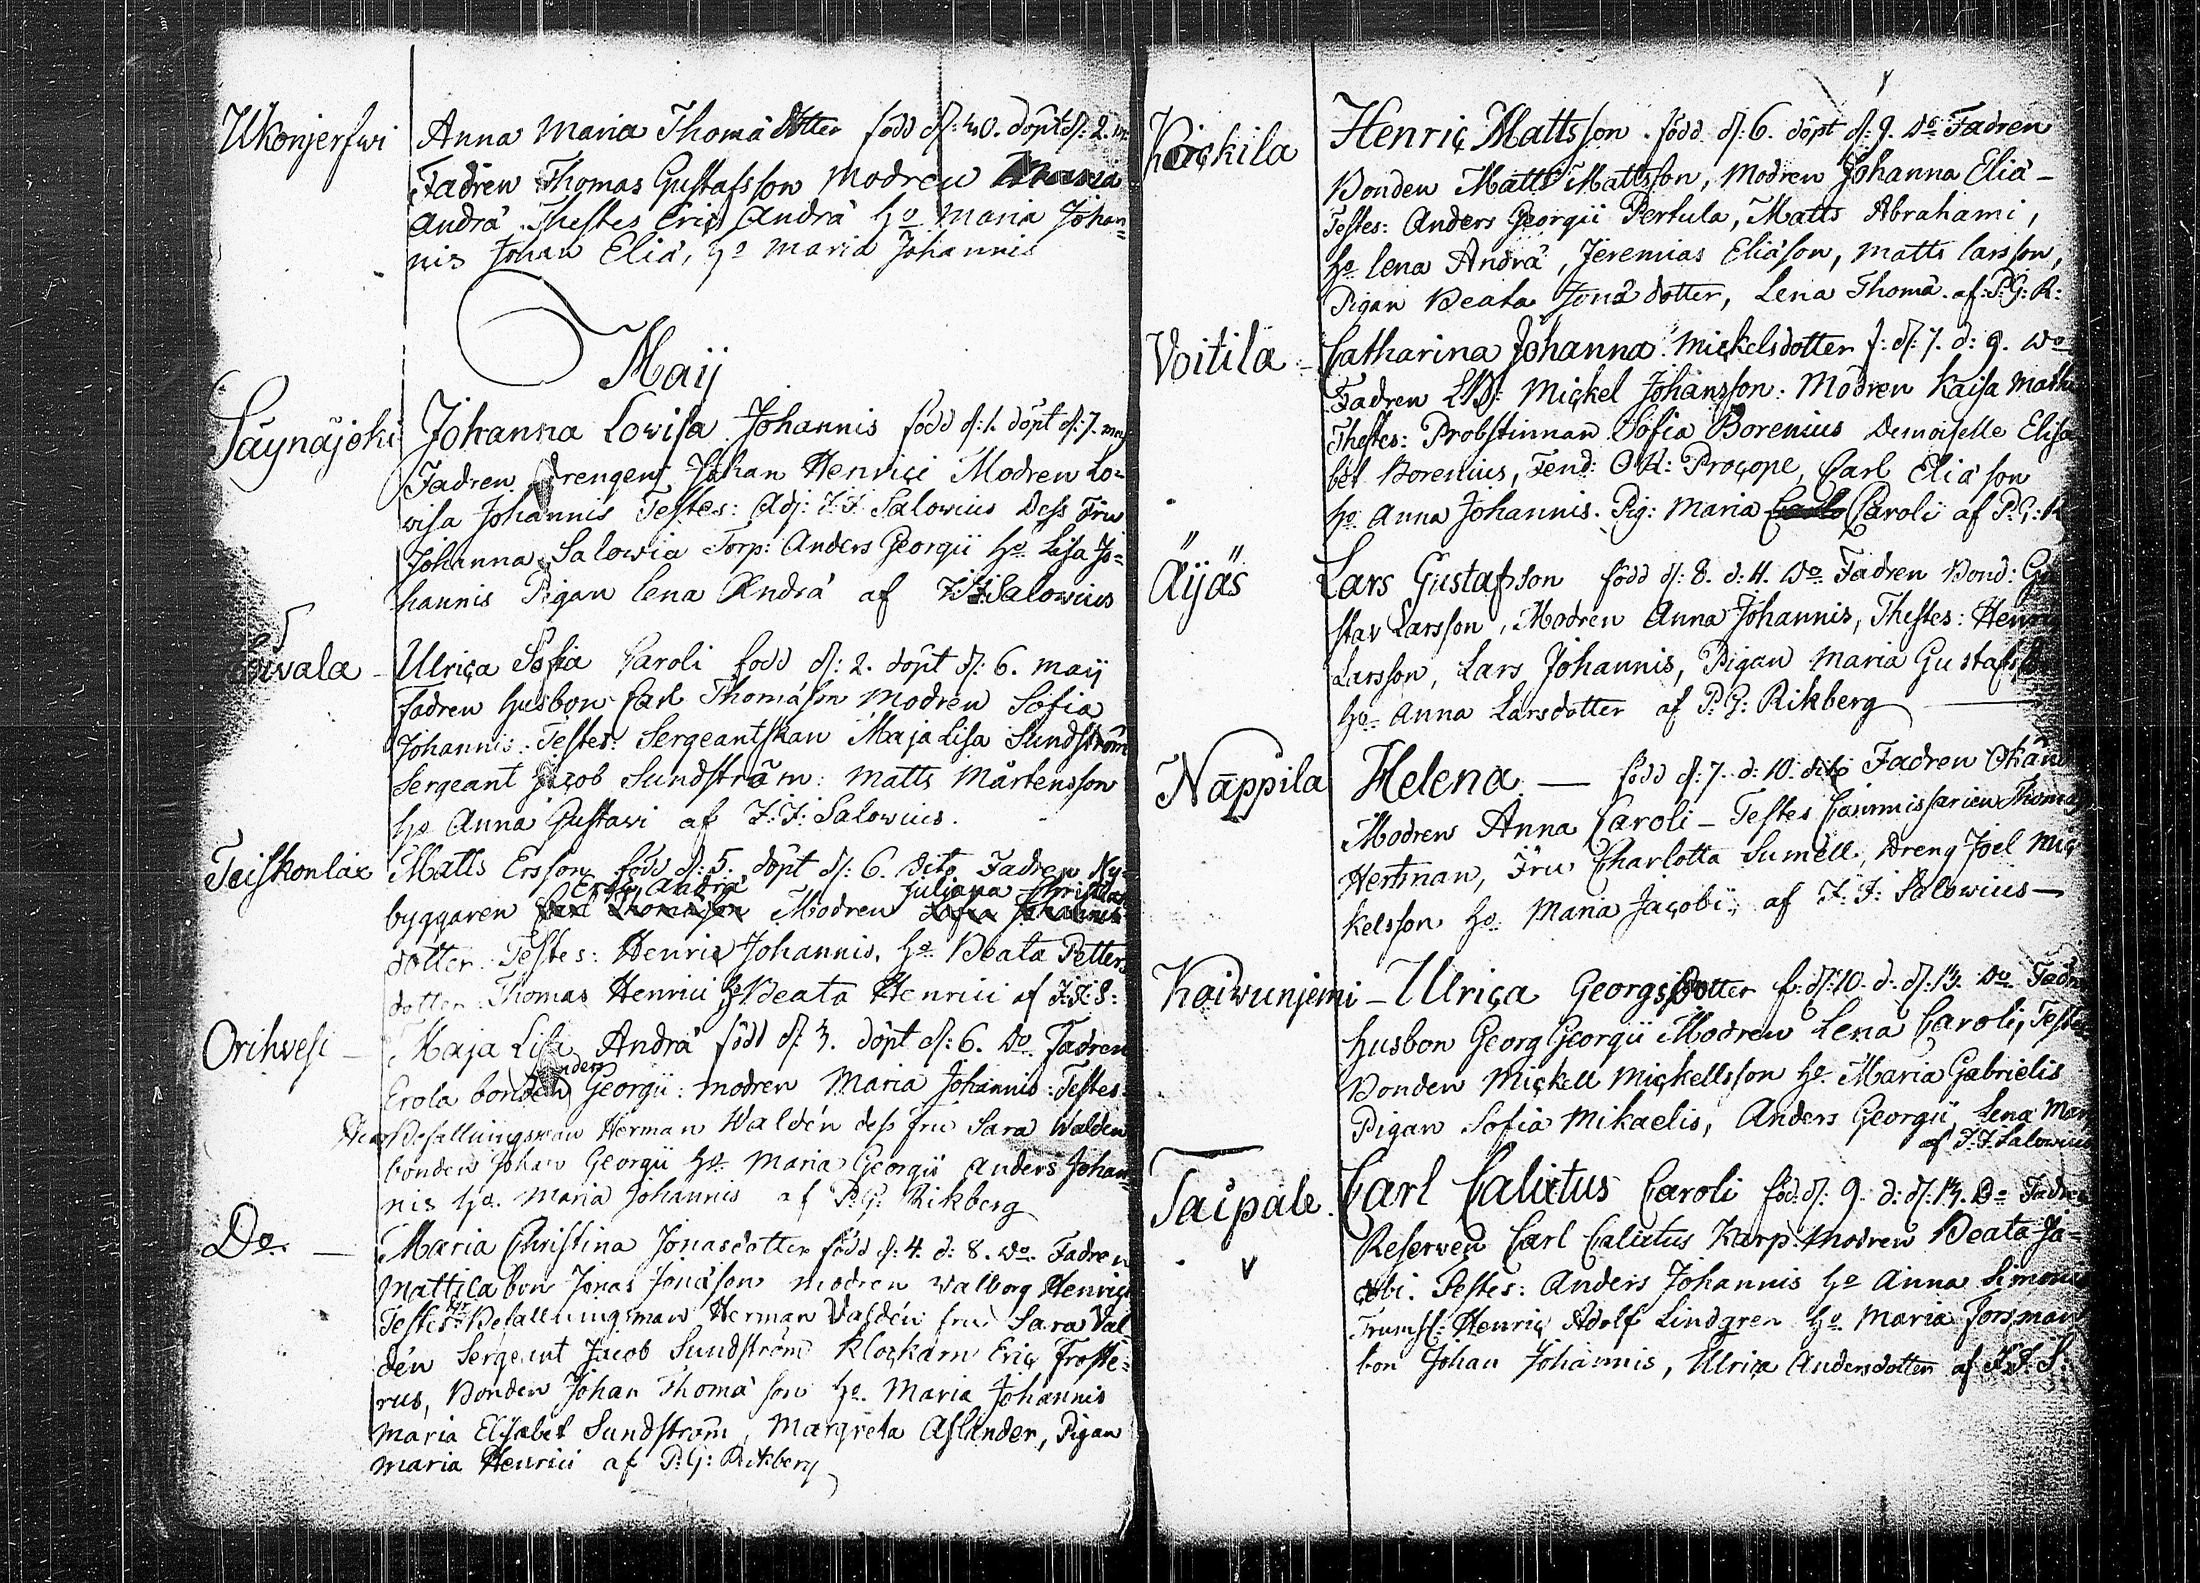 Ukonjerfwi Anna Maria Thomä dotter född d: 30. döpt d: 2. m
Fadren Thomas Gustafsson Modren Maria
Andrä Thestes Eric Andrä ho Maria Johan=
nis Johan Eliä, ho Maria Johannis
Maij
Säynäjoki Johanna Lowisa Johannis född d: 1. döpt d: 7. maij
Fadren drengen Johan Henrici Modren Lo=
visa Johannis Testes: Adj: J: F Salovius Dess Fru
Johanna Salowia Torp: Anders Georgii ho Lisa Jo=
hannis Pigan Lena Andrä af J: F: Salowius
Ulrica Sofia Caroli född d: 2. döpt d: 6. maij
Fadren husbon Carl Thomäson Modren Sofia
Johannis. Testes: Sergeantskan Maja Lisa Sundström
Sergeant Jacob Sundström: Matts Mårtensson
ho Anna Gustavi af J: F: Salowius.
Teiskonlax Matts Ersson född d: 5. döpt d: 6. dito Fadren Ny=
Eric Andrä Juliana Christians
byggaren Carl Thomäson Modren Sofia Johannis
dotter. Testes: Henric Johannis, ho Beata Petters
dotter Thomas Henrici ho Beata Henrici af J: F: S:
Orihvesi – Maja Lisa Andrä född d: 3. döpt d: 6. Do Fadren
Anders
Erola bonden Georgii: modren Maria Johannis: Testes:
Befallningsman Herman Waldén dess fru Sara Waldén
bonden Johan Georgii ho Maria Georgii Anders Johan=
nis ho. Maria Johannis af P: G: Rikberg
Do. – Maria Christina Jonasdotter född d: 4. d: 8. Do. Fadren
Mattila bon Jonas Jonäson modren Walborg Henrici
Testes Hr Befallningsman Herman Valdén fru Sara Val=
dén Sergeant Jacob Sundström Klockarn Eric Froste=
rus, Bonden Johan Thomä son ho. Maria Johannis
Maria Elisabet Sundström, Margreta Aslander, Pigan
Maria Henrici af P: G: Rikberg
Henric Mattsson. född d: 6. döpt d: 9. Do Fadren
Bonden Matts Mattsson, Modren Johanna Eliä –
Testes: Anders Georgii Pertula, Matts Abrahami,
ho Lena Andrä, Jeremias Eliäson, Matts Larsson,
Pigan Beata Jonä dotter, Lena Thomä. af: P: G: R:
Voitila – Catharina Johanna Mickelsdotter f: d: 7. d: 9. Do
Fadren Mickel Johansson: Modren Kaisa Math
Thestes: Probstinnan Sofia Borenius Demoiselle Elisa
bet Borenius, Fend: O K: Procope, Carl Eliä son
ho Anna Johannis. Pig: Maria Carls Caroli af P: G: R
Äijäs Lars Gustafsson född d: 8. d: 4. Do Fadren Bond: Gu
stav Larsson, Modren Anna Johannis, Thestes: Henric
Larsson, Lars Johannis, Pigan Maria Gustafs
ho Anna Larsdotter af P: G: Rikberg
Näppila Helena. — född d: 7. d: 10. dito Fadren Okänd
Modren Anna Caroli – Testes Commissarien Thomas
Hertman, Fru Charlotta Sumell, Dreng Joel Mic
kelsson ho Maria Jacobi, af J: F: Salowius —
Koiwunjemi – Ulrica Georgsdotter f: d: 10. d: d: 13. Do Fadr
husbon Georg Georgii Modren Lena Caroli, Testes
Bonden Mickell Mickellsson ho. Maria Gabrielis
Pigan Sofia Mikaelis, Anders Georgii Lena
af J: F. Salowius
Taipale. Carl Calixtus Caroli föd. d: 9. d: d: 13. Do Fadren
Reserven Carl Calixtus Karp. Modren Beata Ja=
cobi. Testes: Anders Johannis ho Anna Simonis
Trumsl: Henric Adolf Lindgren ho Maria Forsman
bon Johan Johannis, Ulrica Andersdotter af J. F. S: